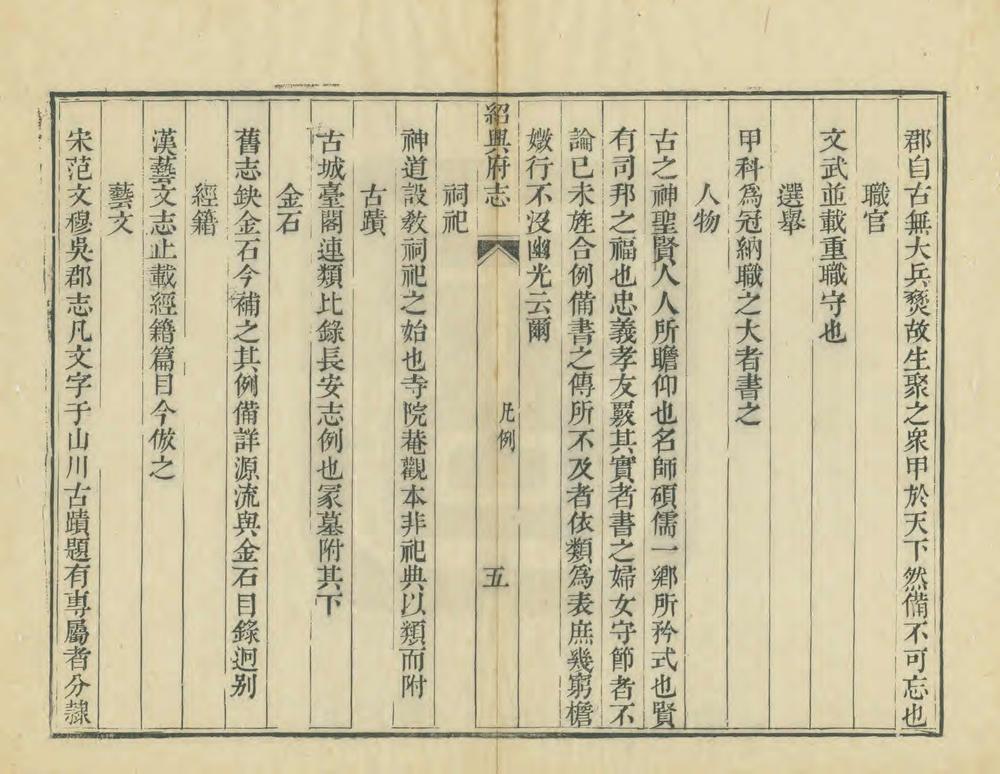 郡自古無大兵燹故生聚之衆甲於天下然備不可忘也
職官
文武並載重職守也
選舉
甲科爲冠納職之大者書之
人物
古之神聖賢人人所瞻仰也名師碩儒一鄉所矜式也賢
有司邦之福也忠義孝友覈其實者書之婦女守節者不
論已未旌合例備書之傳所不及者依類爲表庶幾窮檐
媺行不沒幽光云爾
紹興府志 凡例 五
祠祀
神道設敎祠祀之始也寺院菴觀本非祀典以類而附
古蹟
古城臺閣連類比錄長安志例也冢墓附其下
金石
舊志缺金石今補之其例備詳源流與金石目錄迥别
經籍
漢藝文志止載經籍篇目今倣之
藝文
宋范文穆吳郡志凡文字于山川古蹟題有專屬者分隸